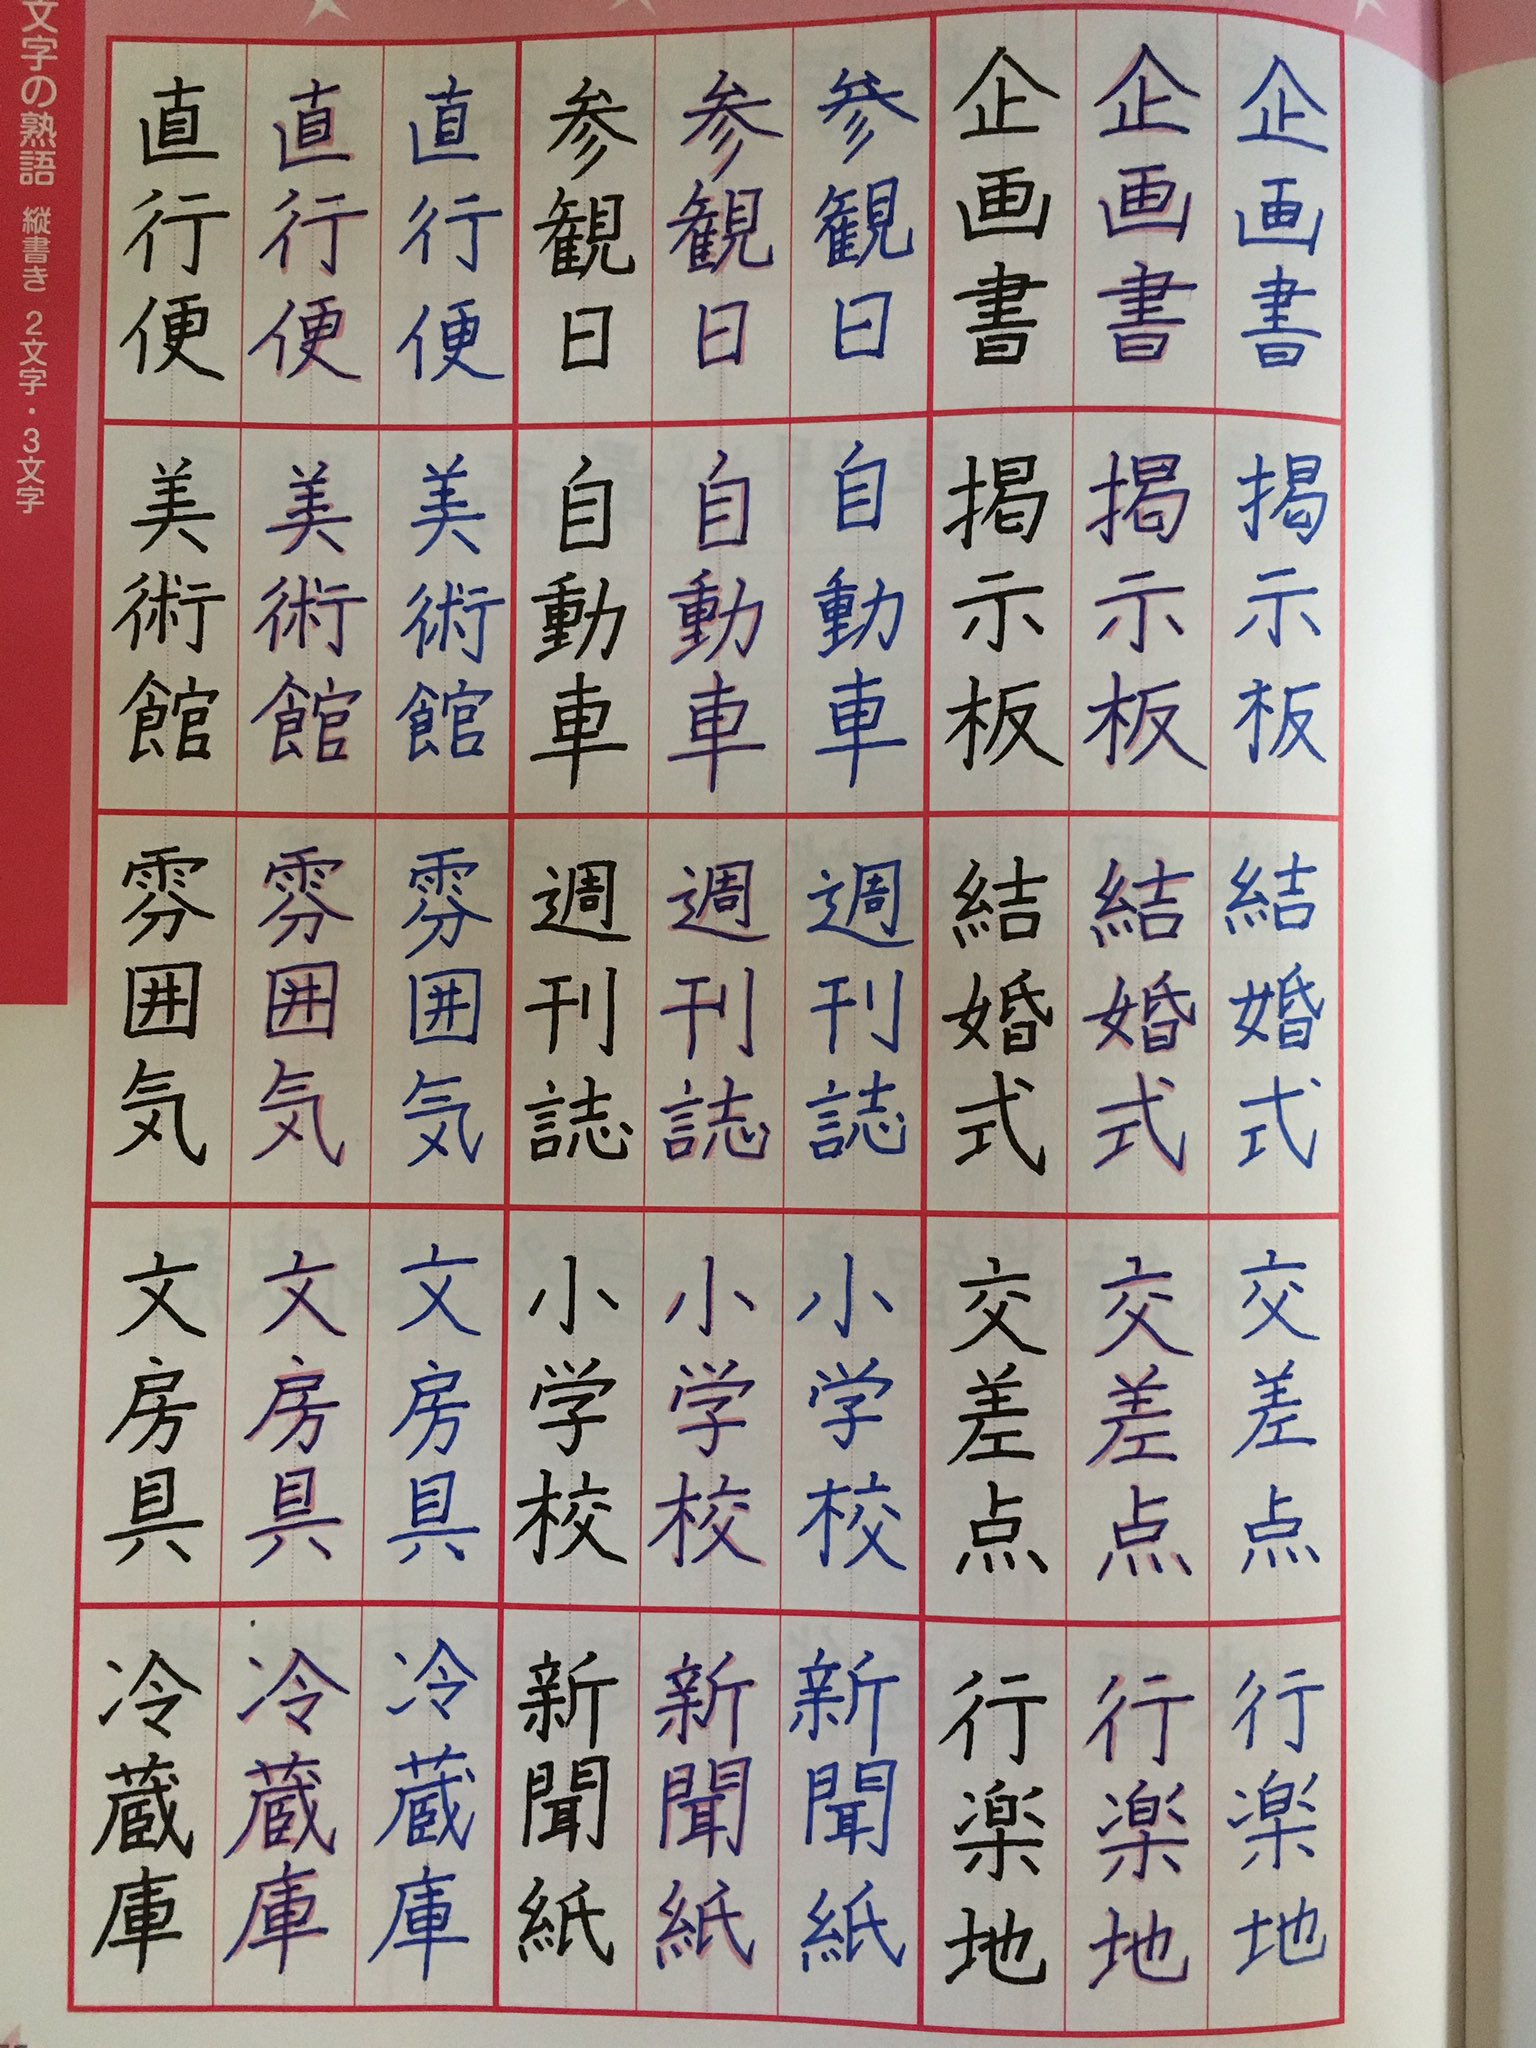 文字の熟語 縦書き 2文字・3文字
企画書
企画書
企画書
掲示板
掲示板
掲示板
結婚式
結婚式
結婚式
交差点
交差点
交差点
行楽地
行楽地
行楽地
参観日
参観日
参観日
自動車
自動車
自動車
週刊誌
週刊誌
週刊誌
小学校
小学校
小学校
新聞紙
新聞紙
新聞紙
直行便
直行便
直行便
美術館
美術館
美術館
雰囲気
雰囲気
雰囲気
文房具
文房具
文房具
冷蔵庫
冷蔵庫
冷蔵庫